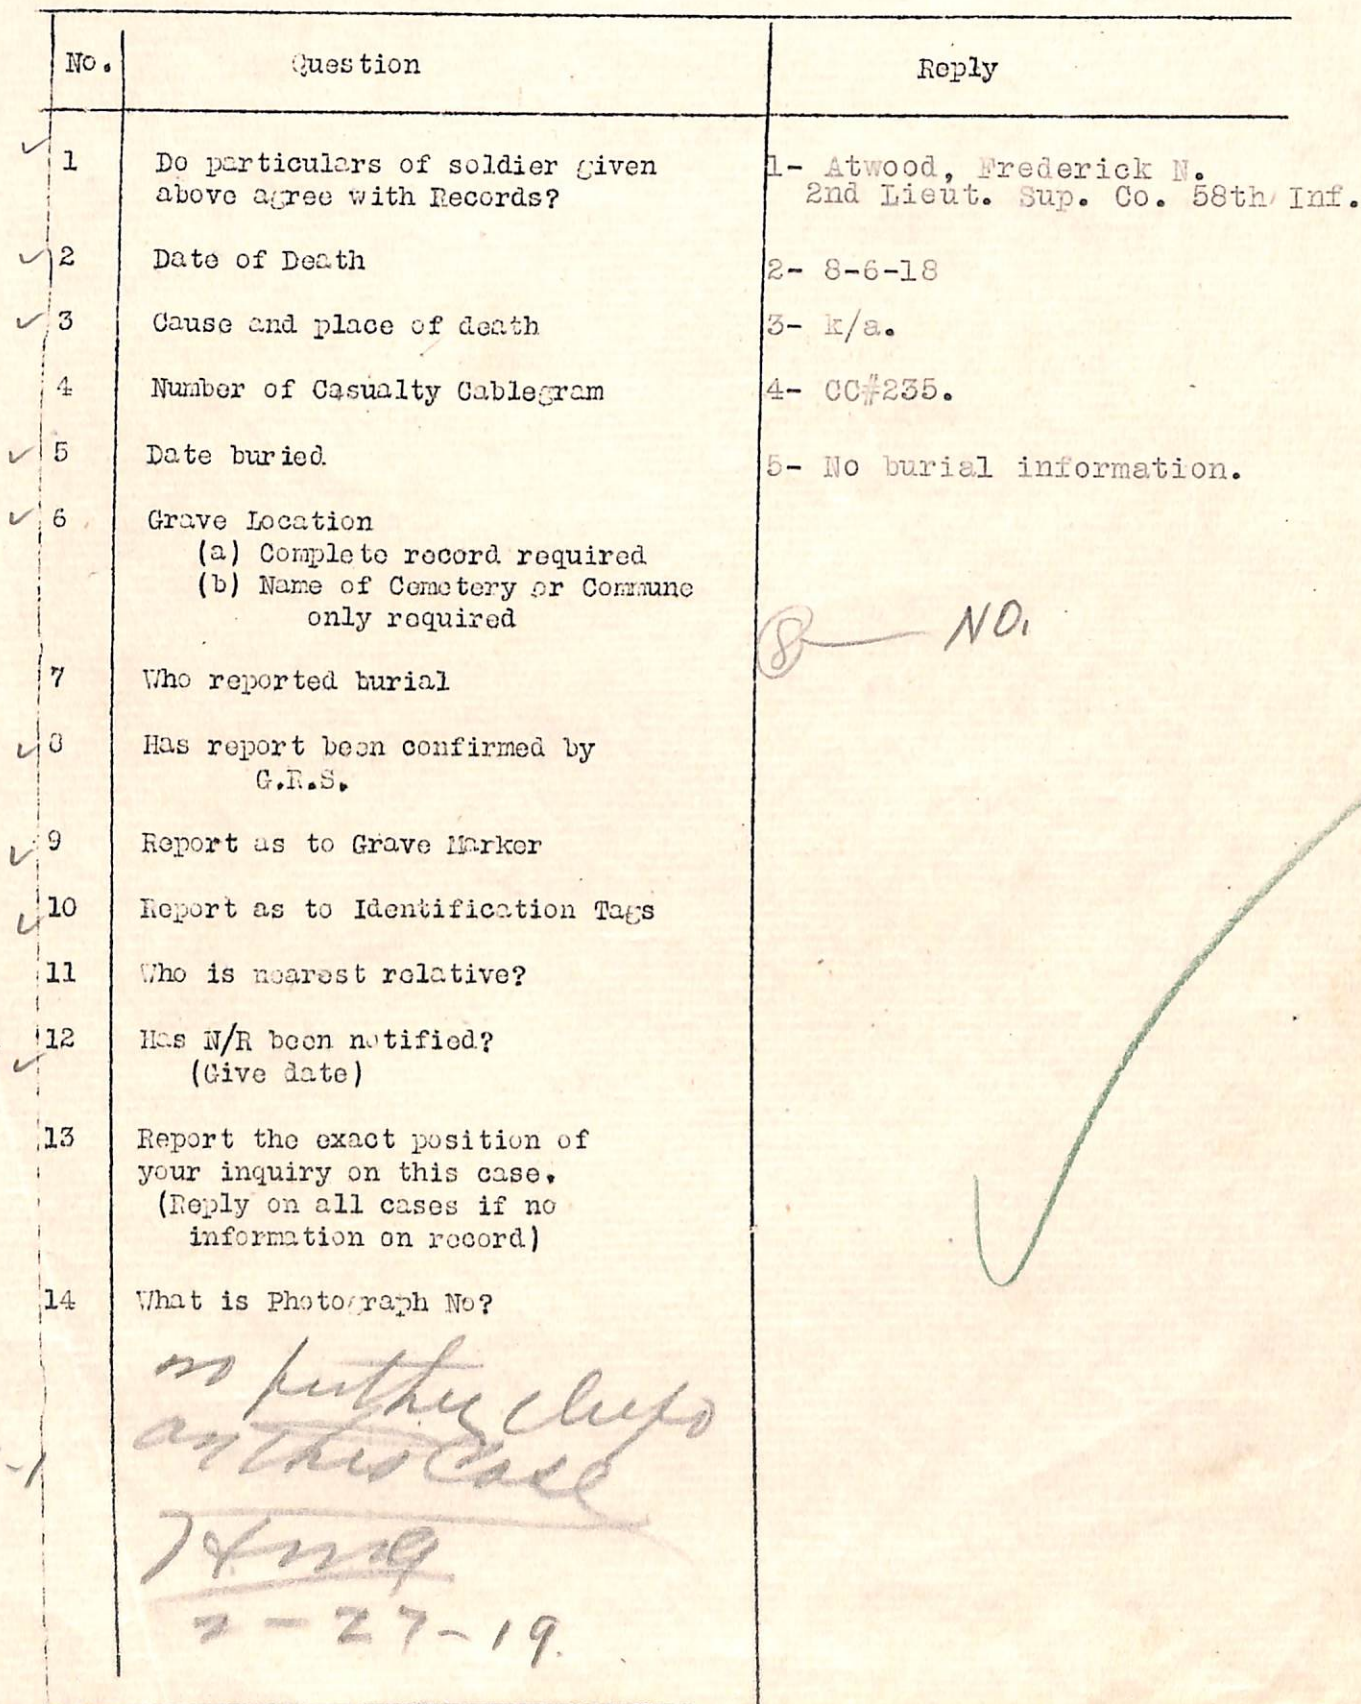 No. Question Reply
1 Do particulars of soldier given 1- Atwood, Frederick N.
above agree with Records? 2nd Lieut. Sup. Co. 58th Inf.
2 Date of Death 2- 8-6-18
3 Cause and place of death 3- k/a.
4 Number of Casualty Cablegram 4- CC#235.
5 Date buried 5- No burial information.
6 Grave Location
(a) Complete record required
(b) Name of Cemetery or Commune
only required
8 — NO.
7 Who reported burial
8 Has report been confirmed by
G.R.S.
9 Report as to Grave Marker
10 Report as to Identification Tags
11 Who is nearest relative?
12 Has N/R been notified?
(Give date)
13 Report the exact position of
your inquiry on this case.
(Reply on all cases if no
information on record)
14 What is Photograph No?
no further
on this case
2-27-19.